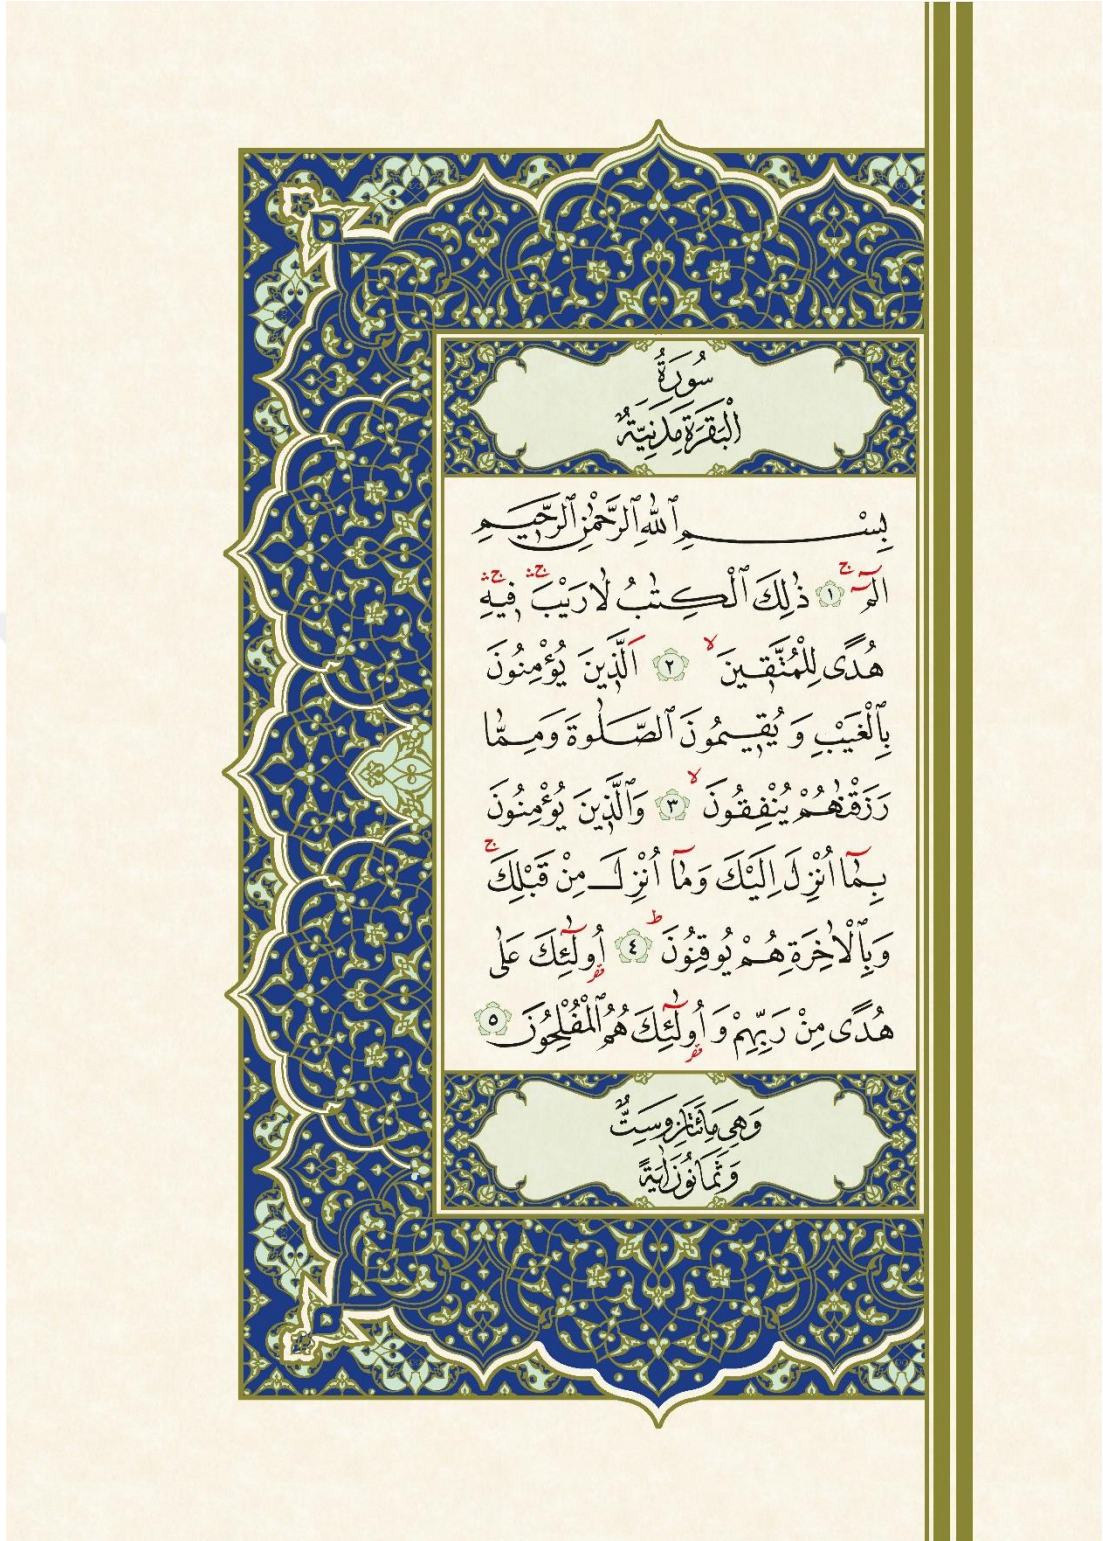 سُورَةُ
الْبَقَرَةِ مَدَنِيَّةٌ
بِسْمِ ٱللّٰهِ ٱلرَّحْمٰنِ ٱلرَّحِيمِ
الٓمٓ ۚ ﴿١﴾ ذٰلِكَ ٱلْكِتٰبُ لَا رَيْبَ ۛ فِيهِ ۛ
هُدًى لِلْمُتَّقِينَ ۙ ﴿٢﴾ اَلَّذِينَ يُؤْمِنُونَ
بِٱلْغَيْبِ وَيُقِيمُونَ ٱلصَّلٰوةَ وَمِمَّا
رَزَقْنٰهُمْ يُنْفِقُونَ ۙ ﴿٣﴾ وَٱلَّذِينَ يُؤْمِنُونَ
بِمَٓا اُنْزِلَ اِلَيْكَ وَمَٓا اُنْزِلَ مِنْ قَبْلِكَ ۚ
وَبِٱلْاٰخِرَةِ هُمْ يُوقِنُونَ ۜط ﴿٤﴾ اُولٰٓئِكَ عَلٰى
هُدًى مِنْ رَبِّهِمْ وَاُولٰٓئِكَ هُمُ ٱلْمُفْلِحُونَ ﴿٥﴾
وَهِيَ مِائَتَانِ وَسِتٌّ
وَثَمَانُونَ اٰيَةً